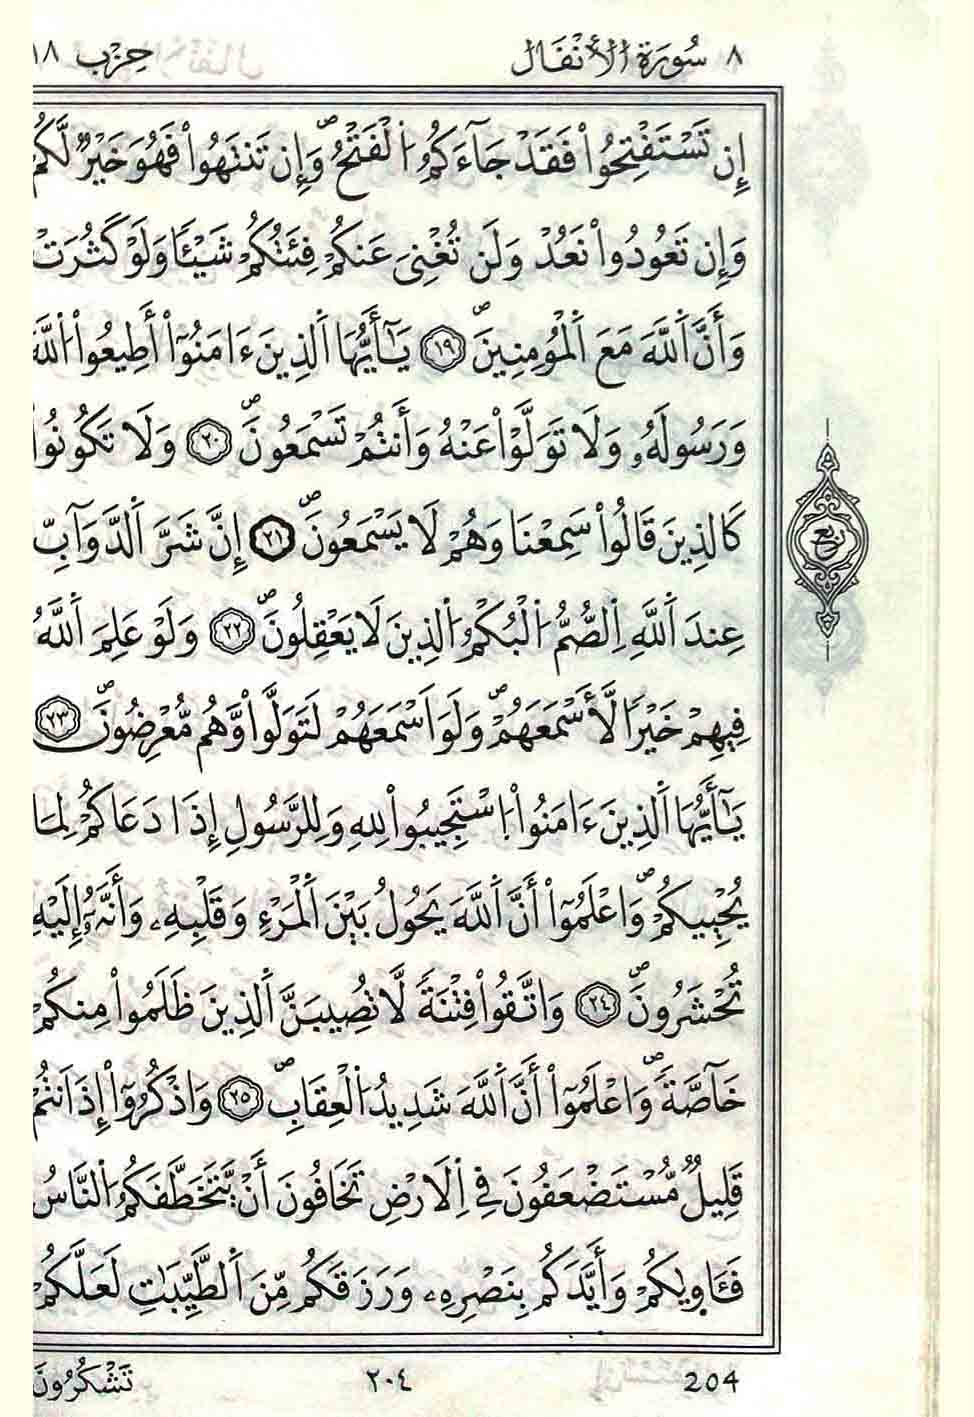 ٨ سُورَةُ الْأَنْفَال حِزْب ١٨
إِن تَسْتَفْتِحُواْ فَقَدْ جَآءَكُمُ اُ۬لْفَتْحُۖ وَإِن تَنتَهُواْ فَهُوَ خَيْرٞ لَّكُمْ
وَإِن تَعُودُواْ نَعُدْ وَلَن تُغْنِيَ عَنكُمْ فِئَتُكُمْ شَيْـٔاٗ وَلَوْ كَثُرَتْ
وَأَنَّ اَ۬للَّهَ مَعَ اَ۬لْمُومِنِينَۖ ١٩ يَـٰٓأَيُّهَا اَ۬لذِينَ ءَامَنُوٓاْ أَطِيعُواْ اُ۬للَّهَ
وَرَسُولَهُۥ وَلَا تَوَلَّوْاْ عَنْهُ وَأَنتُمْ تَسْمَعُونَۖ ٢٠ وَلَا تَكُونُواْ
كَالذِينَ قَالُواْ سَمِعْنَا وَهُمْ لَا يَسْمَعُونَۖ ٢١ إِنَّ شَرَّ اَ۬لدَّوَآبِّ
عِندَ اَ۬للَّهِ اِ۬لصُّمُّ اُ۬لْبُكْمُ اُ۬لذِينَ لَا يَعْقِلُونَۖ ٢٢ وَلَوْ عَلِمَ اَ۬للَّهُ
فِيهِمْ خَيْراٗ لَّأَسْمَعَهُمْۖ وَلَوَ اَسْمَعَهُمْ لَتَوَلَّواْ وَّهُم مُّعْرِضُونَۖ ٢٣
يَـٰٓأَيُّهَا اَ۬لذِينَ ءَامَنُواْ اُ۪سْتَجِيبُواْ لِلهِ وَلِلرَّسُولِ إِذَا دَعَاكُمْ لِمَا
يُحْيِيكُمْۖ وَاعْلَمُوٓاْ أَنَّ اَ۬للَّهَ يَحُولُ بَيْنَ اَ۬لْمَرْءِ وَقَلْبِهِۦ وَأَنَّهُۥٓ إِلَيْهِ
تُحْشَرُونَۖ ٢٤ وَاتَّقُواْ فِتْنَةٗ لَّا تُصِيبَنَّ اَ۬لذِينَ ظَلَمُواْ مِنكُمْ
خَآصَّةٗۖ وَاعْلَمُوٓاْ أَنَّ اَ۬للَّهَ شَدِيدُ اُ۬لْعِقَابِۖ ٢٥ وَاذْكُرُوٓاْ إِذَ اَنتُمْ
قَلِيلٞ مُّسْتَضْعَفُونَ فِي اِ۬لَارْضِ تَخَافُونَ أَنْ يَّتَخَطَّفَكُمُ اُ۬لنَّاسُ
فَـَٔاو۪يٰكُمْ وَأَيَّدَكُم بِنَصْرِهِۦ وَرَزَقَكُم مِّنَ اَ۬لطَّيِّبَـٰتِ لَعَلَّكُمْ
ربع
204 ٢٠٤ تَشْكُرُونَ